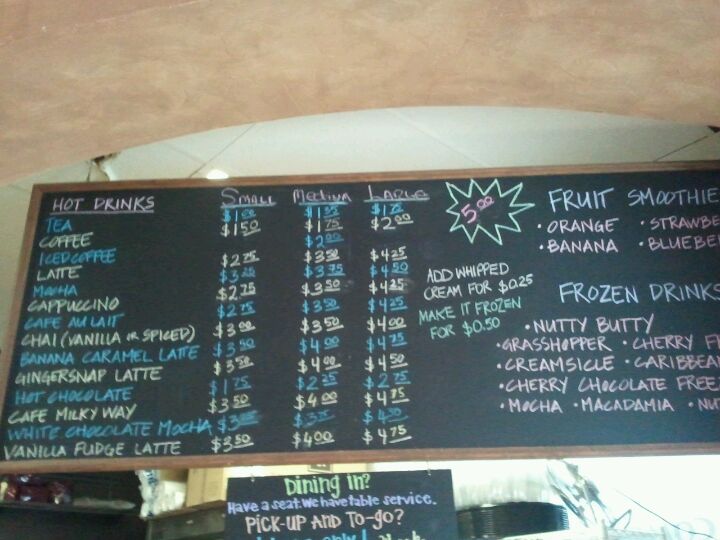 HOT DRINKS SMALL MEDIUM LARGE
TEA $1.00 $1.35 $1.75
COFFEE $1.50 $1.75 $2.00
ICED COFFEE $2.00
LATTE $2.75 $3.50 $4.25
MOCHA $3.25 $3.75 $4.50
CAPPUCCINO $2.75 $3.50 $4.25
CAFE AU LAIT $2.75 $3.50 $4.25
CHAI (VANILLA OR SPICED) $3.00 $3.50 $4.00
BANANA CARAMEL LATTE $3.50 $4.00 $4.75
GINGERSNAP LATTE $3.50 $4.00 $4.50
HOT CHOCOLATE $1.75 $2.25 $2.75
CAFE MILKY WAY $3.50 $4.00 $4.75
WHITE CHOCOLATE MOCHA
VANILLA FUDGE LATTE $3.50 $4.00 $4.75
5.00
ADD WHIPPED
CREAM FOR $0.25
MAKE IT FROZEN
FOR $0.50
FRUIT SMOOTHIE
• ORANGE • STRAWBE
• BANANA • BLUEBE
FROZEN DRINKS
• NUTTY BUTTY
• GRASSHOPPER • CHERRY F
• CREAMSICLE • CARIBBEA
• CHERRY CHOCOLATE FREEZ
• MOCHA • MACADAMIA • NU
Dining in?
Have a seat. We have table service.
PICK-UP AND TO-GO?